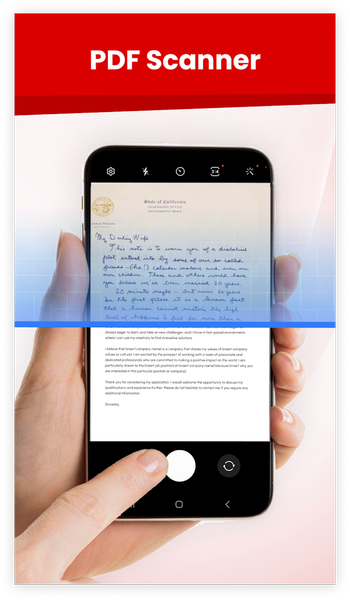 PDF Scanner
3:4
State of California
GOVERNOR'S OFFICE
My Darling Wife
This note is to warn you of a diabolical
plot entered into by some of our so called
friends (ha!) calendar makers and even our
own children. These and others would have
you believe we've been married 20 years.
20 minutes maybe - but never 20 years.
In the first place it is a known fact
that a human cannot sustain the high
level of happiness I feel for more than a
always eager to learn and take on new challenges, and I thrive in fast-paced environments
where I can use my creativity to find innovative solutions
I believe that [insert company name] is a company that shares my values of [insert company
values or culture]. I am excited by the prospect of working with a team of passionate and
dedicated professionals who are committed to making a positive impact on the world. I am
particularly drawn to the [insert job position] at [insert company name] because [insert why you
are interested in this particular position or company].
Thank you for considering my application. I would welcome the opportunity to discuss my
qualifications and experience further. Please do not hesitate to contact me if you require any
additional information.
Sincerely,